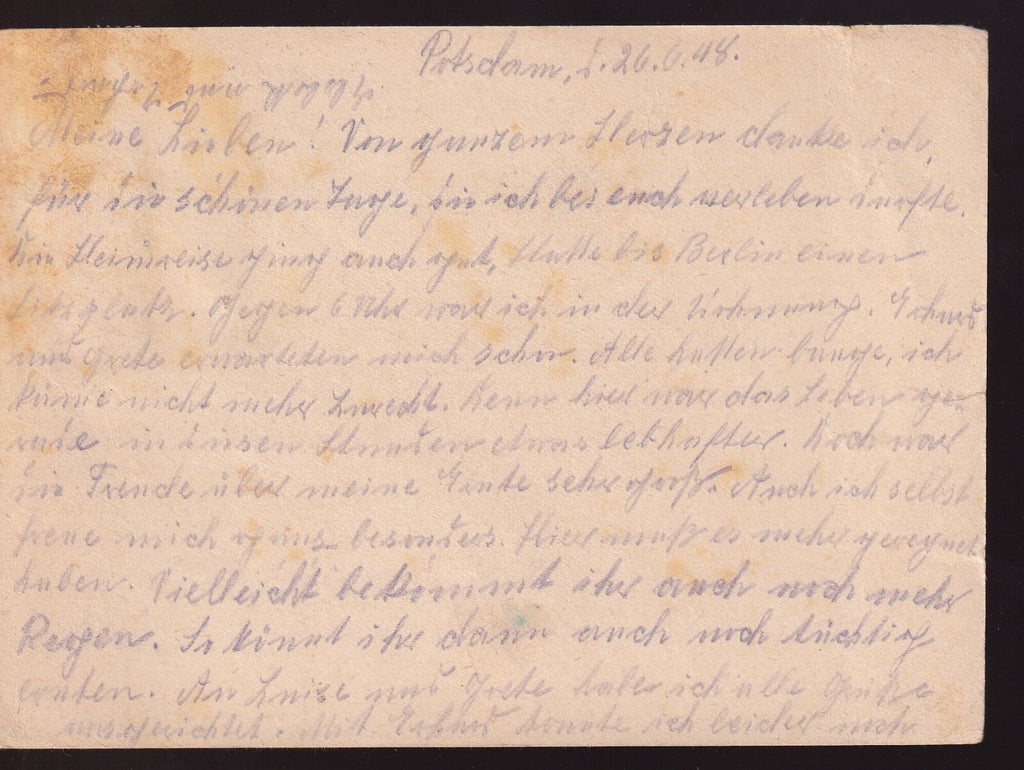 Potsdam, d. 26.6.48.
Meine Lieben! Von ganzem Herzen danke ich,
für die schönen Tage, die ich bei euch verleben durfte.
Die Heimreise ging auch gut, Hatte bis Berlin einen
Sitzplatz. Gegen 6 Uhr war ich in der Wohnung. Erhard
und Grete erwarteten mich schon. Alle hatten bange, ich
käme nicht mehr zurecht. Denn hier war das Leben ge-
rade in diesen Stunden etwas lebhafter. Doch war
die Freude über meine Ernte sehr groß. Auch ich selbst
freue mich ganz besonders. Hier muß es mehr geregnet
haben. Vielleicht bekommt ihr auch noch mehr
Regen. So könnt ihr dann auch noch tüchtig
ernten. An Luise und Grete habe ich alle Grüße
ausgerichtet. Mit Erhard konnte ich leider nicht